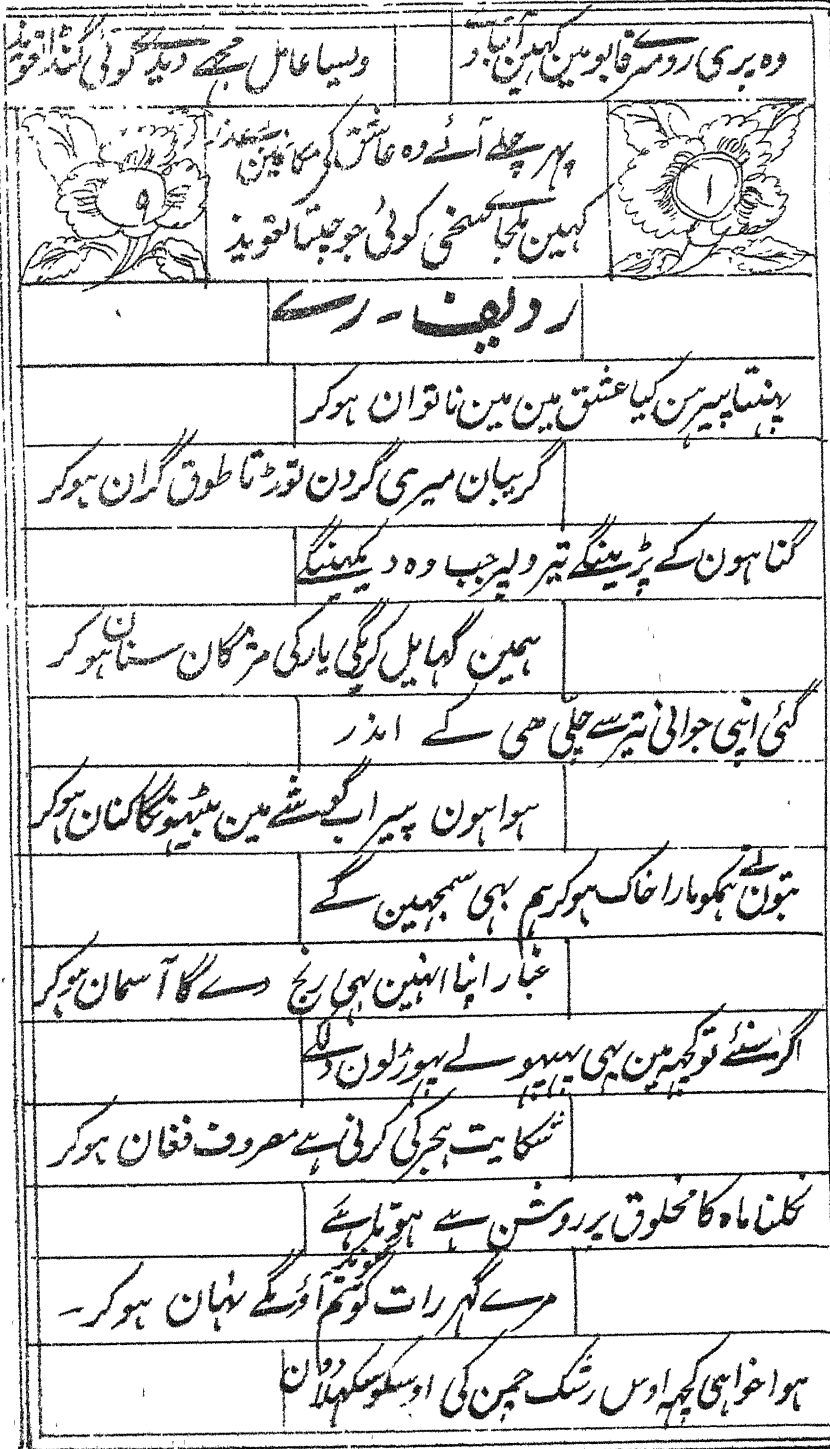 وہ پری رو مرے قابو مین کہین آتا ہے
ویسا عامل مجھے دیدے کوئی گنڈا تعویذ
پہر چلے آئے وہ عاشق کی مکانین
کہین ملجا سخی کوئی جو جپتا تعویذ
۱
۹
ردیف - رے
پہنتا پیرہن کیا عشق مین مین ناتوان ہوکر
گریبان میری گردن توڑتا طوق گران ہوکر
گناہون کے پڑینگے تیر دلپر جب وہ دیکھینگے
ہمین گہایل کریگی یار کی مژگان سنان ہوکر
گئی اپنی جوانی تیر سے چلّی ھی کے اندر
ہوا ہون پیر اب گوشے مین بیٹہونگا کمان ہوکر
بتون نے ہمکو مارا خاک ہوکر ہم بہی سمجہین گے
غبار اپنا انہین بہی رنج دے گا آسمان ہوکر
اگر سنئے تو کچہہ مین بہی پہپہولے پہوڑلون دلکے
شکایت ہجر کی کرنی ہے مصروف فغان ہوکر
نکلنا ماہ کا مخلوق پر روشن ہے ہوتا ہے
مرے گہر رات کو تم آؤگے نہان ہوکر۔
ہوا خواہی کچہہ اوس رشک چمن کی اوسکو سکہلادون